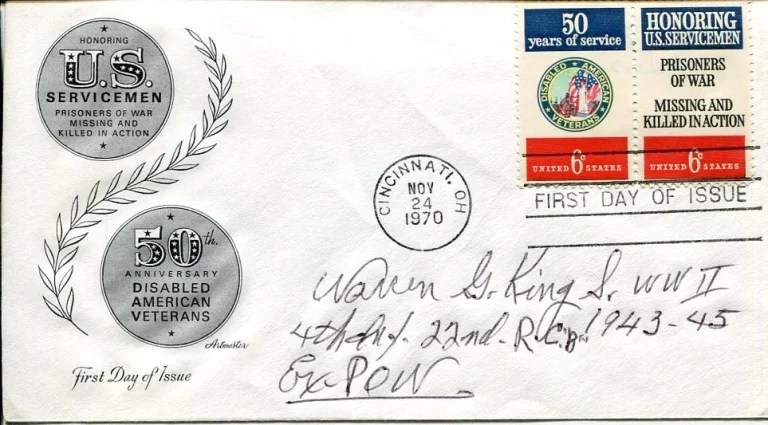 HONORING
U.S.
SERVICEMEN
PRISONERS OF WAR
MISSING AND
KILLED IN ACTION
50th.
ANNIVERSARY
DISABLED
AMERICAN
VETERANS
Artmaster
First Day of Issue
50
years of service
DISABLED AMERICAN
VETERANS
UNITED 6c STATES
HONORING
U.S. SERVICEMEN
PRISONERS
OF WAR
MISSING AND
KILLED IN ACTION
UNITED 6c STATES
CINCINNATI, OH
NOV
24
1970
FIRST DAY OF ISSUE
Warren G. King Sr. WW II
4th 22nd. 1943-45
Ex-POW